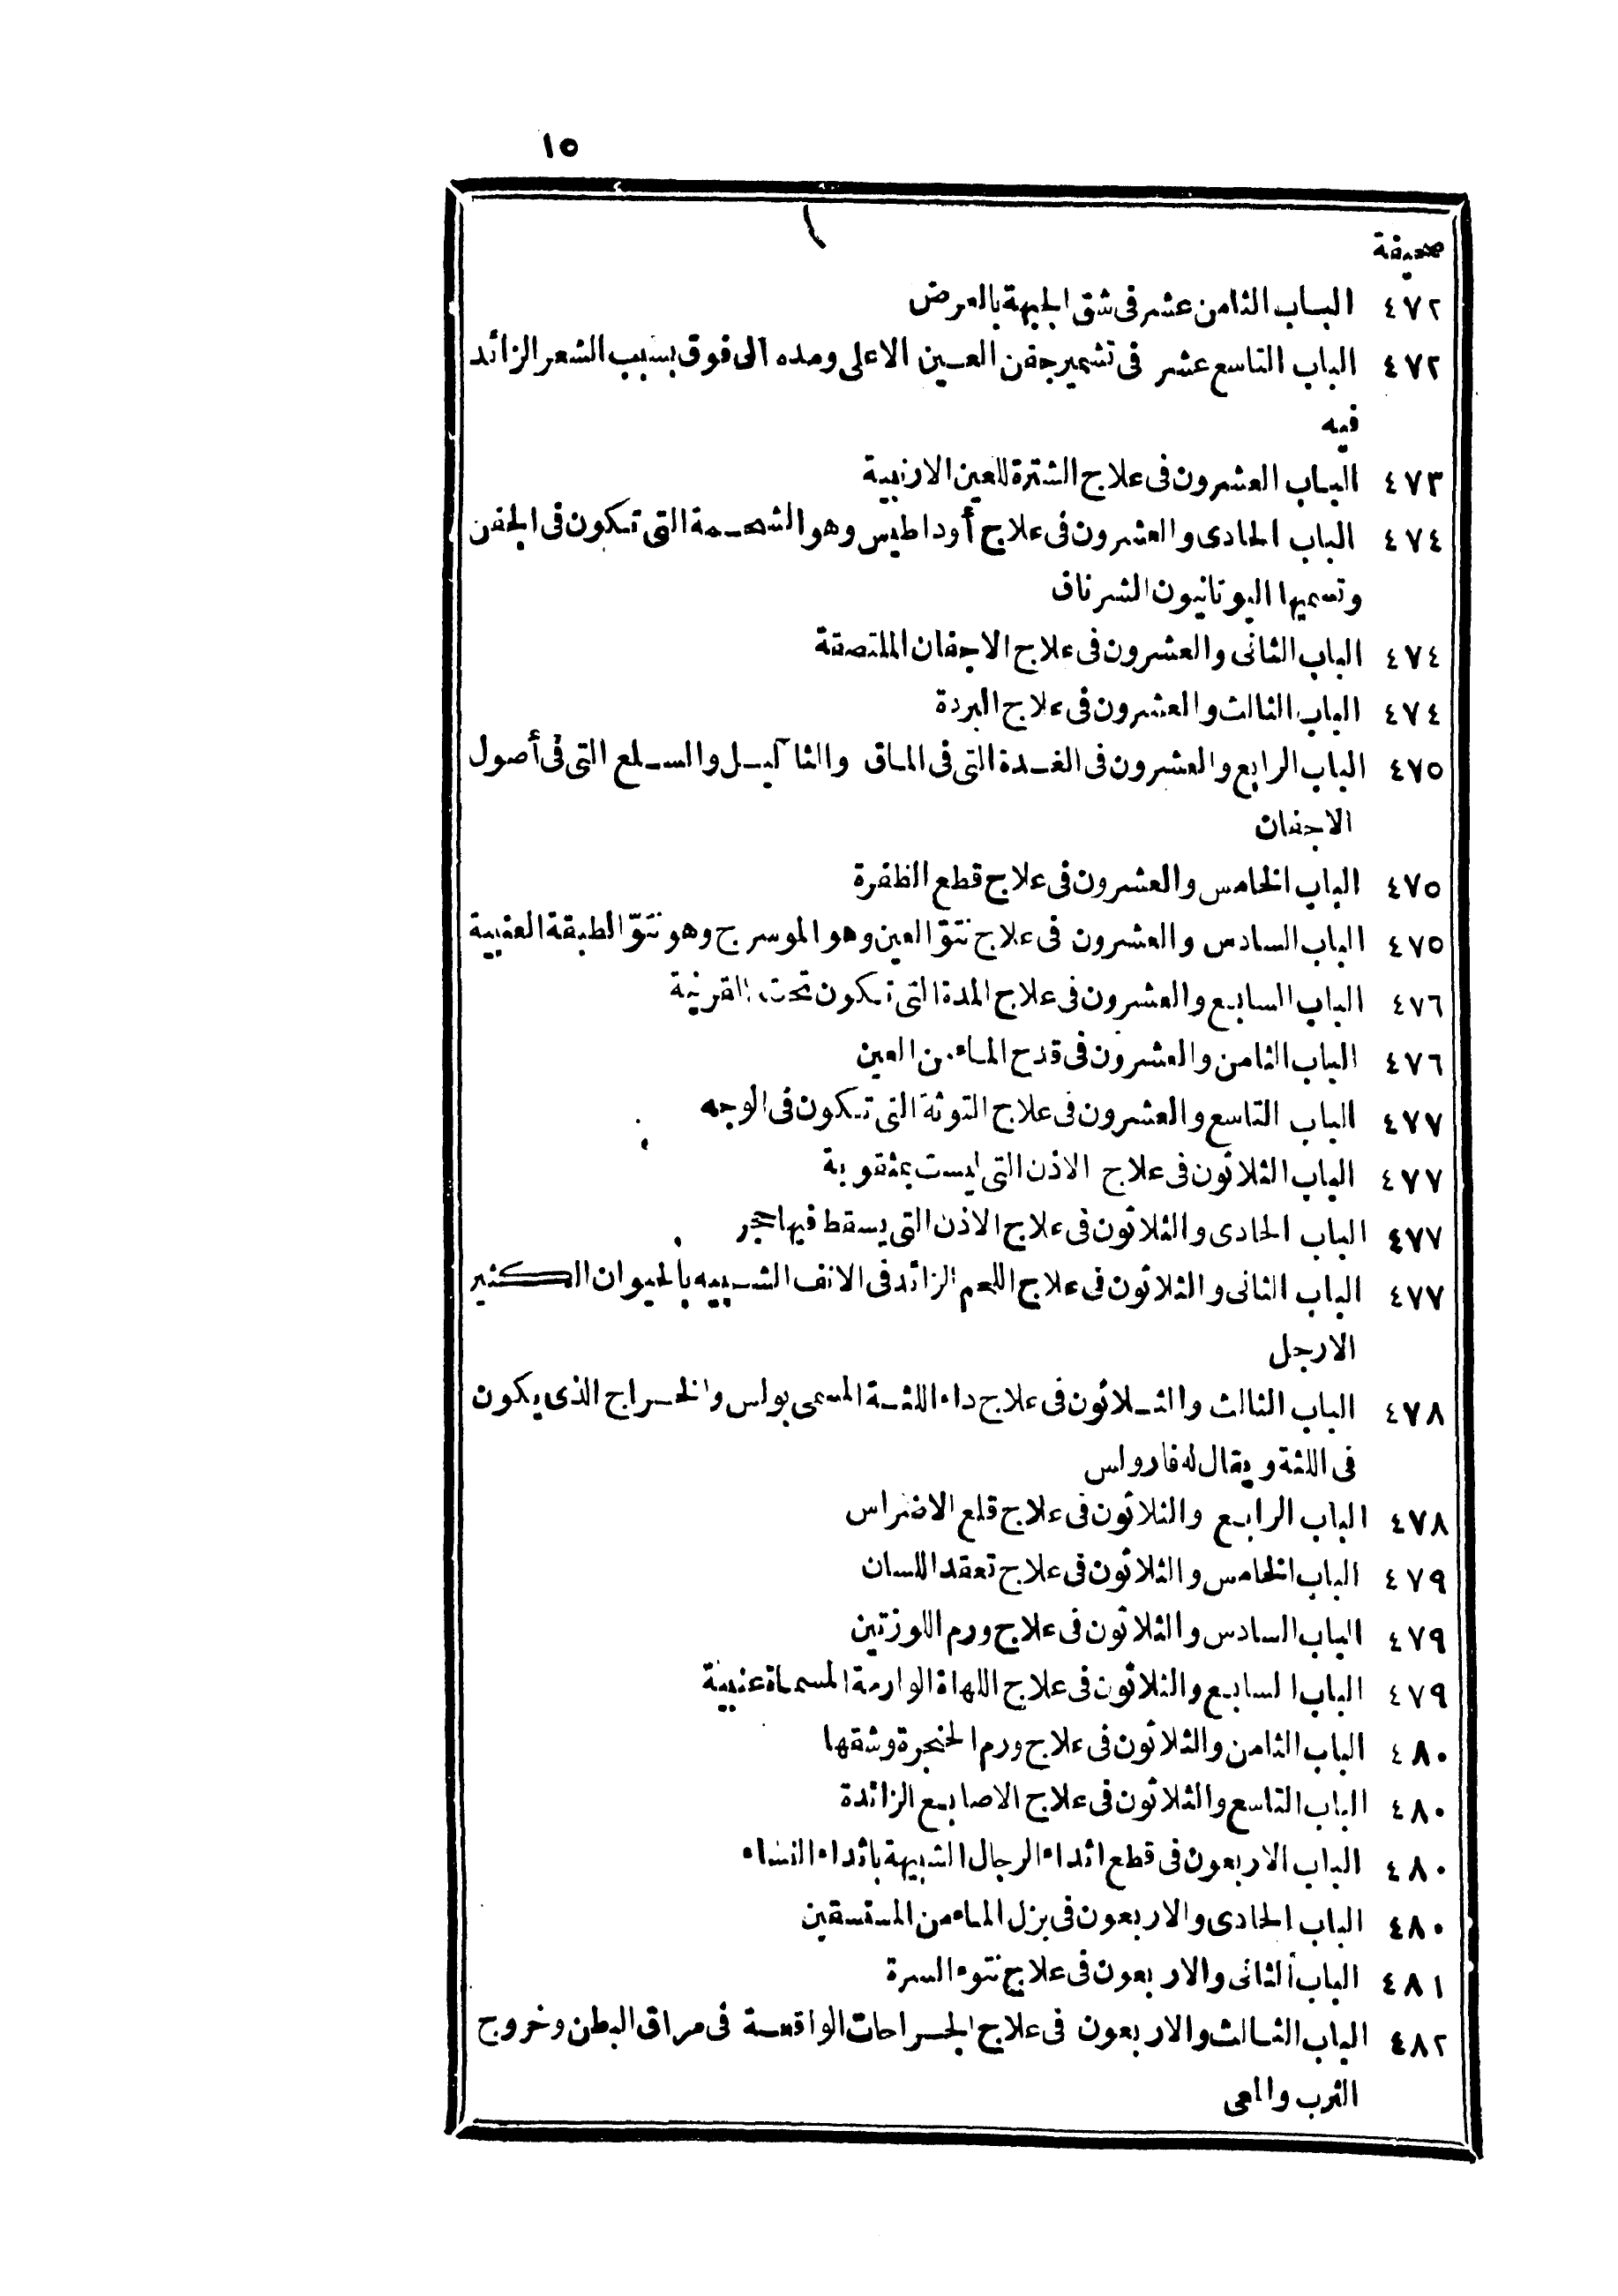 ١٥
صحيفة
٤٧٢ الباب الثامن عشر فى شق الجبهة بالعرض
٤٧٢ الباب التاسع عشر فى تشمير جفن العين الاعلى ومده الى فوق بسبب الشعر الزائد
فيه
٤٧٣ الباب العشرون فى علاج الشترة للعين الارنبية
٤٧٤ الباب الحادى والعشرون فى علاج أوداطيس وهو الشحمة التى تكون فى الجفن
وتسميها اليونانيون الشرناق
٤٧٤ الباب الثانى والعشرون فى علاج الاجفان الملتصقة
٤٧٤ الباب الثالث والعشرون فى علاج البردة
٤٧٥ الباب الرابع والعشرون فى الغدة التى فى الماق والثآ ليل والسلع التى فى أصول
الاجفان
٤٧٥ الباب الخامس والعشرون فى علاج قطع الظفرة
٤٧٥ الباب السادس والعشرون فى علاج نتوّ العين وهو الموسرج وهو نتوّ الطبقة العنبية
٤٧٦ الباب السابع والعشرون فى علاج المدة التى تكون تحت القرنية
٤٧٦ الباب الثامن والعشرون فى قدح الماء من العين
٤٧٧ الباب التاسع والعشرون فى علاج التوثة التى تكون فى الوجه
٤٧٧ الباب الثلاثون فى علاج الاذن التى ليست بمثقوبة
٤٧٧ الباب الحادى والثلاثون فى علاج الاذن التى يسقط فيها حجر
٤٧٧ الباب الثانى والثلاثون فى علاج اللحم الزائد فى الانف الشبيه بالحيوان الكثير
الارجل
٤٧٨ الباب الثالث والثلاثون فى علاج داء اللثة المسمى بولس والخراج الذى يكون
فى اللثة ويقال له فارولس
٤٧٨ الباب الرابع والثلاثون فى علاج قلع الاضراس
٤٧٩ الباب الخامس والثلاثون فى علاج تعقد اللسان
٤٧٩ الباب السادس والثلاثون فى علاج ورم اللوزتين
٤٧٩ الباب السابع والثلاثون فى علاج اللهاة الوارمة المسماة عنبية
٤٨٠ الباب الثامن والثلاثون فى علاج ورم الحنجرة وشقها
٤٨٠ الباب التاسع والثلاثون فى علاج الاصابع الزائدة
٤٨٠ الباب الاربعون فى قطع اثداء الرجال الشبيهة باثداء النساء
٤٨٠ الباب الحادى والاربعون فى بزل الماء من المستسقين
٤٨١ الباب الثانى والاربعون فى علاج نتوء السرة
٤٨٢ الباب الثالث والاربعون فى علاج الجراحات الواقعة فى مراق البطن وخروج
الثرب والمعى